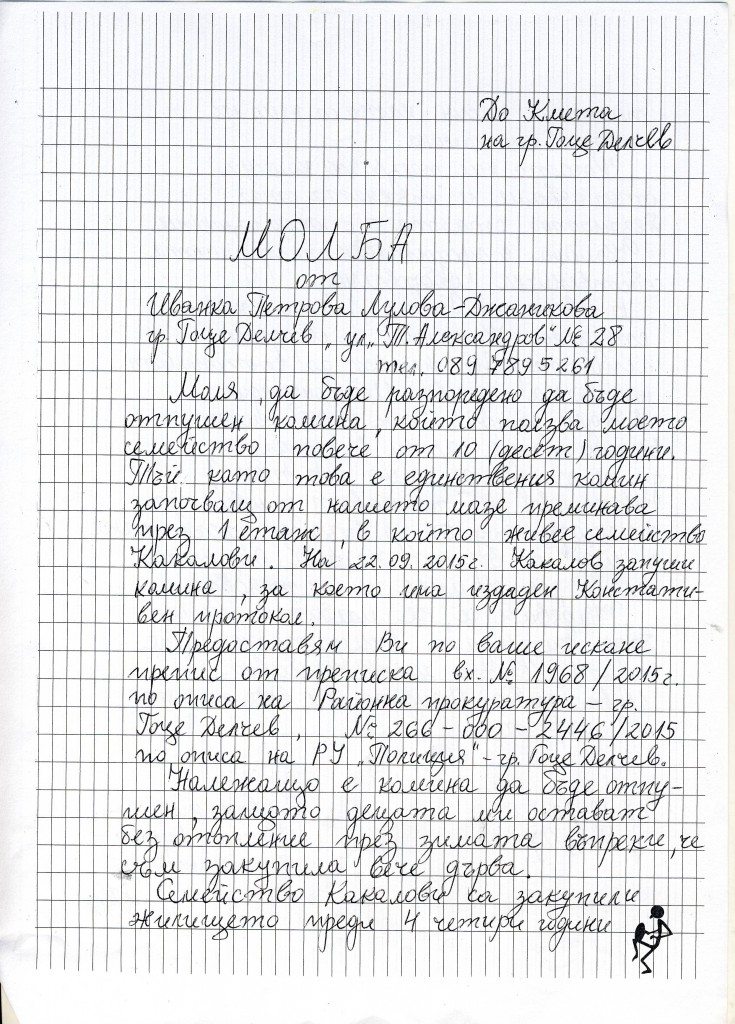 До Кмета
на гр. Гоце Делчев
МОЛБА
от
Иванка Петрова Лулова-Джаникова
гр. Гоце Делчев, ул. „Т. Александров" № 28
тел. 089 7895261
Моля, да бъде разпоредено да бъде
отпушен комина, който ползва моето
семейство повече от 10 (десет) години.
Тъй като това е единствения комин
започващ от нашето мазе преминава
през 1 етаж, в който живее семейство
Какалови. На 22.09.2015г. Какалов запуши
комина, за което има издаден Констати-
вен протокол.
Предоставям Ви по ваше искане
препис от преписка вх. № 1968/2015г.
по описа на Районна прокуратура – гр.
Гоце Делчев, № 266-000-2446/2015
по описа на РУ „Полиция" - гр. Гоце Делчев.
Належащо е комина да бъде отпу-
шен, защото децата ми остават
без отопление през зимата въпреки, че
съм закупила вече дърва.
Семейство Какалови са закупили
жилището преди 4 четири години